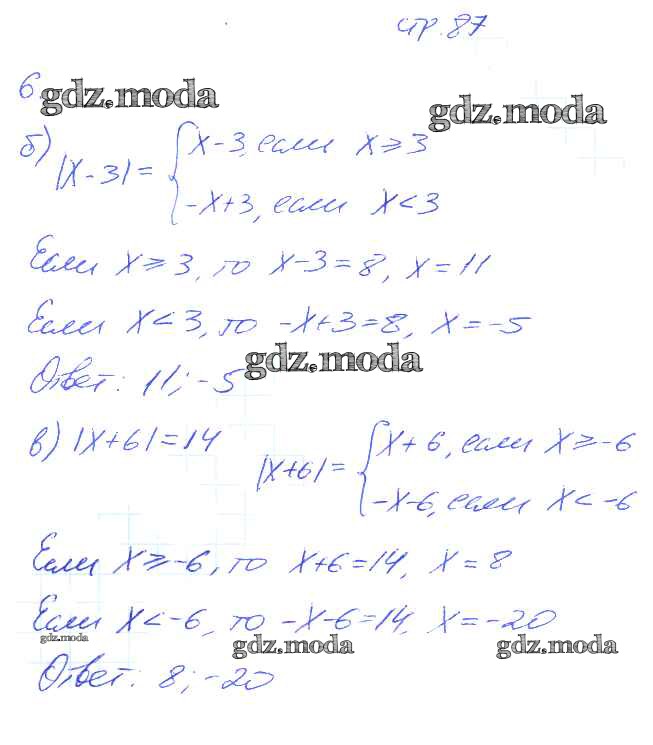 стр. 87
6. gdz.moda
gdz.moda
б) |x-3| = { x-3, если x ≥ 3
-x+3, если x < 3
Если x ≥ 3, то x-3=8, x=11
Если x < 3, то -x+3=8, x=-5
gdz.moda
Ответ: 11; -5
в) |x+6|=14 |x+6| = { x+6, если x ≥ -6
-x-6, если x < -6
Если x ≥ -6, то x+6=14, x=8
Если x < -6, то -x-6=14, x=-20
gdz.moda gdz.moda gdz.moda
Ответ: 8; -20